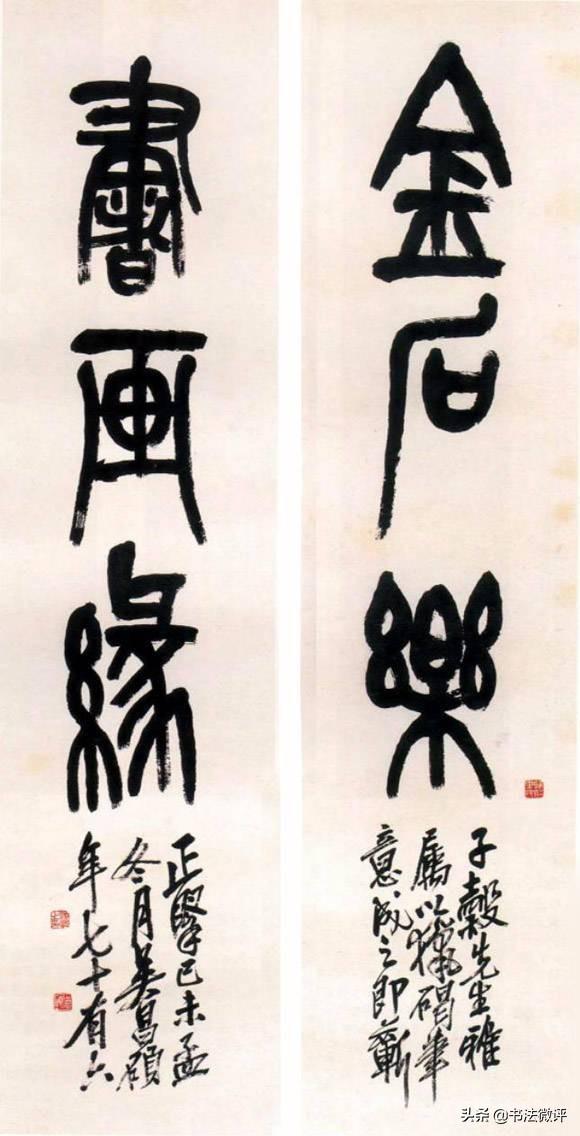 金石樂
子穀先生雅
屬以獵碣筆
意成之即蘄
書画緣
正 己未孟
冬月吳昌碩
年七十有六
头条 @书法微评